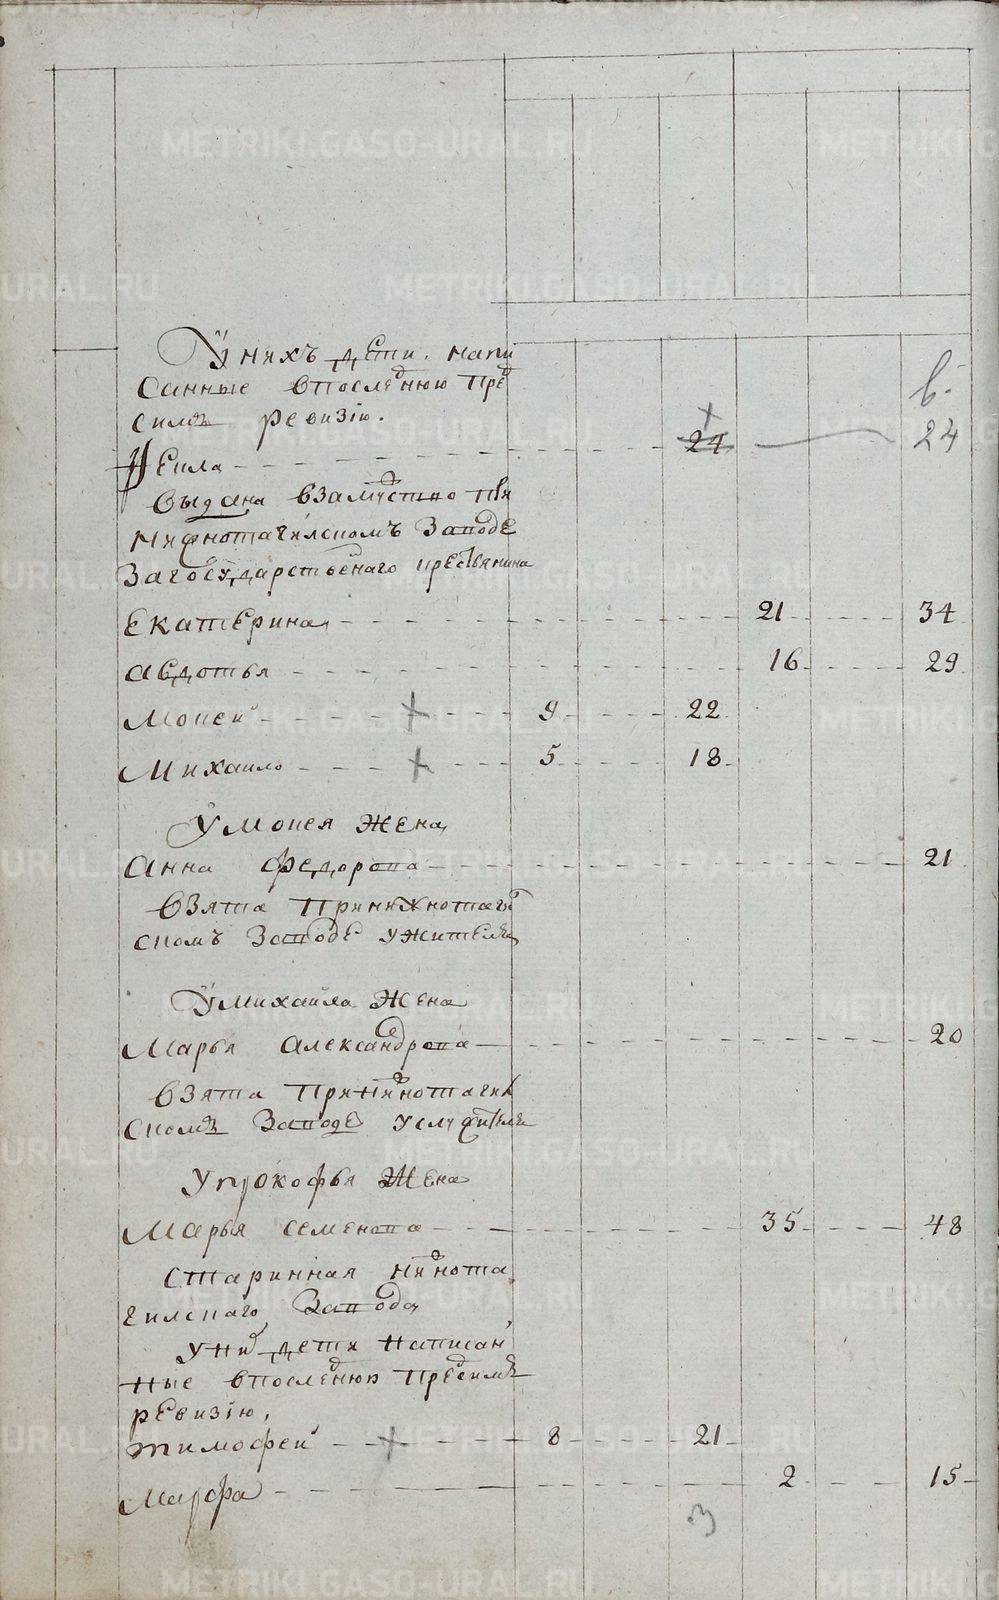 У нихъ дети напи
санные впоследнюю пред
симъ ревизiю.
в.
24 24
выдана взамуство при
Нижнотагилскомъ Заводе
Загосударственаго крестьянина
Екатерина 21 34
Авдотья 16 29
Мокей 9 22
Михаило 5 18
У Мокея Жена
Анна Федорова 21
Взята При нижнотаги
скомъ Заводе у жителя
У Михаила Жена
Марья Александрова 20
Взята При нижнотагил
скомъ Заводе у служителя
У прокофья Жена
Марья Семенова 35 48
Старинная нижнота
гилскаго Завода
У них дети Написан
ные впоследнюю Предсимъ
ревизiю,
тимофей 8 21
Марфа 2 15
3
METRIKI.GASO-URAL.RU